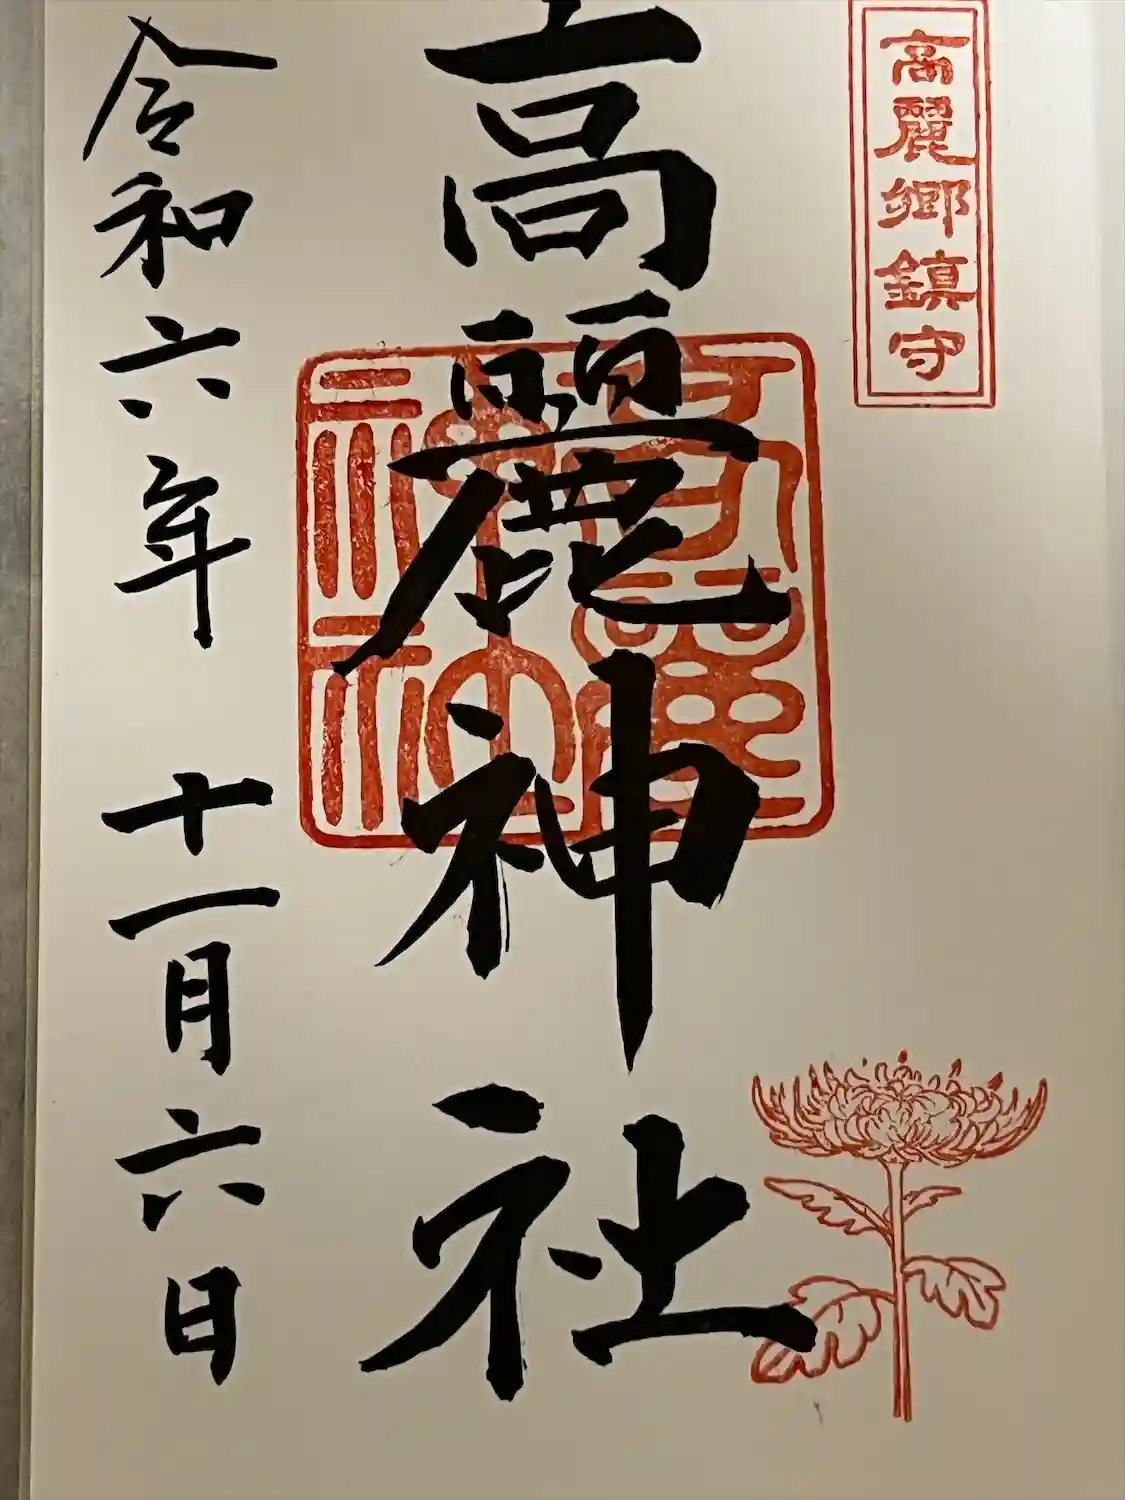 高麗郷鎮守
高麗神社
令和六年 十一月六日